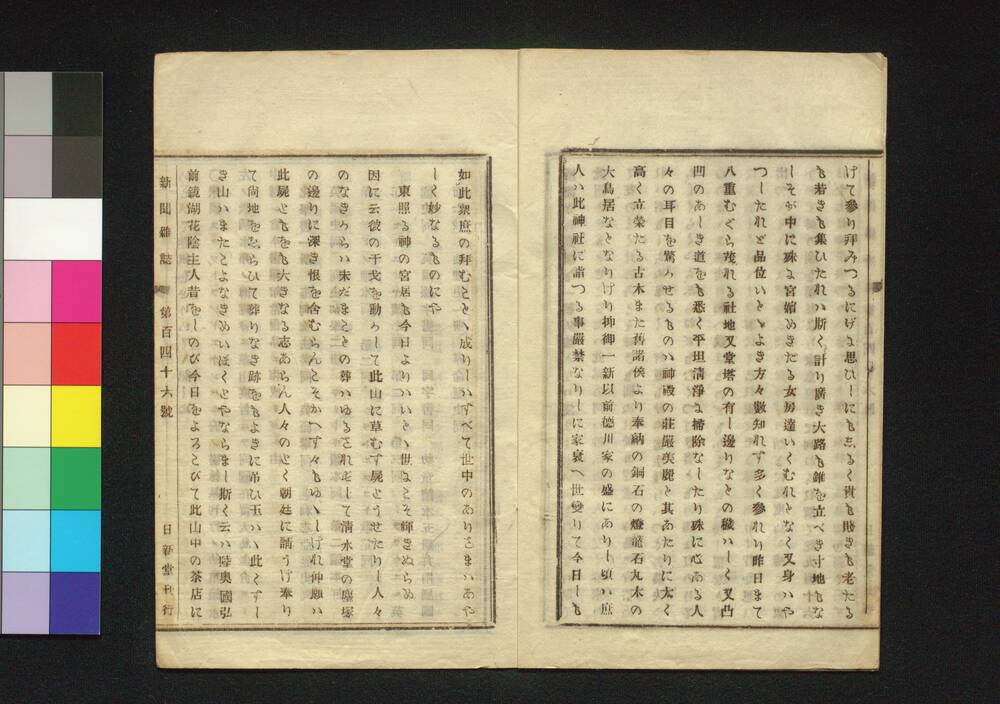 げて參り拜みつるにげよ思ひしにもまるく貴も賤きも老たる
も若きも集ひたれハ斯く計り廣き大路も錐を立べき寸地もな
しそが中に殊よ宮嬪めきたる女房達いくむれとなく又身ハや
つしたれど品位いとゞよき方々數知れず多く參れり昨日まて
八重むぐら茂れる社地又堂塔の有し邊りなどの穢ハしく又凸
凹のあしき道をも悉く平坦清淨よ掃除なしたり殊に心ある人
々の耳目を驚かせるものハ神殿の莊嚴美麗と其あたりに太く
高く立榮たる古木また舊諸侯より奉納の銅石の燈籠石丸木の
大鳥居などなりけり抑御一新以前德川家の盛にありし頃ハ庶
人ハ此神社に詣つる事嚴禁なりしに家衰へ世變りて今日しも
如此衆庶の拜むことゝ成りしハすべて世中のありさまハあや
しく妙なるものにや
東照る神の宮居も今日よりハいとゝ世よこそ輝きぬらめ
因に云彼の干戈を動かして此山に草むす屍とうせたりし人々
のなきからハ未だまことの葬ハゆるされずして清水堂の塵塚
の邊りに深き恨を含むらんこそかへす々もゆゝしけれ仰願ハ
此屍ともをも大きなる志あらん人々のとく朝廷に請うけ奉り
て尚地をゑらひて葬りなき跡をもよきに吊ひ玉ハゝ此くすし
き山ハまたとよなきめいぼくとやならまし斯く云ハ陸奥國弘
前鏡湖花陰主人昔をしのび今日をよろこびて此山中の茶店に
新聞雜誌 第百四十六號 日新堂刊行